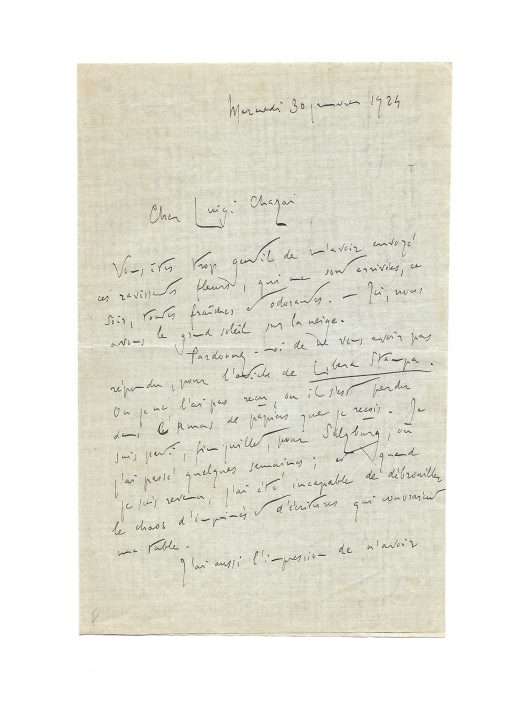 Mercredi 30 janvier 1924
Cher Luigi
Vous êtes trop gentil de m'avoir envoyé
ces ravissantes fleurs, qui me sont arrivées, ce
soir, toutes fraîches et odorantes. — Ici, nous
avons le grand soleil sur la neige.
Pardonnez-moi de ne vous avoir pas
répondu, pour l'article de Libera Stampa.
Ou je ne l'ai pas reçu, ou il s'est perdu
dans l'amas de papiers que je reçois. Je
suis parti, fin juillet, pour Salzburg, où
j'ai passé quelques semaines ; et quand
je suis revenu, j'ai été incapable de débrouiller
le chaos d'imprimés et d'écritures qui couvraient
ma table.
J'ai aussi l'impression de n'avoir